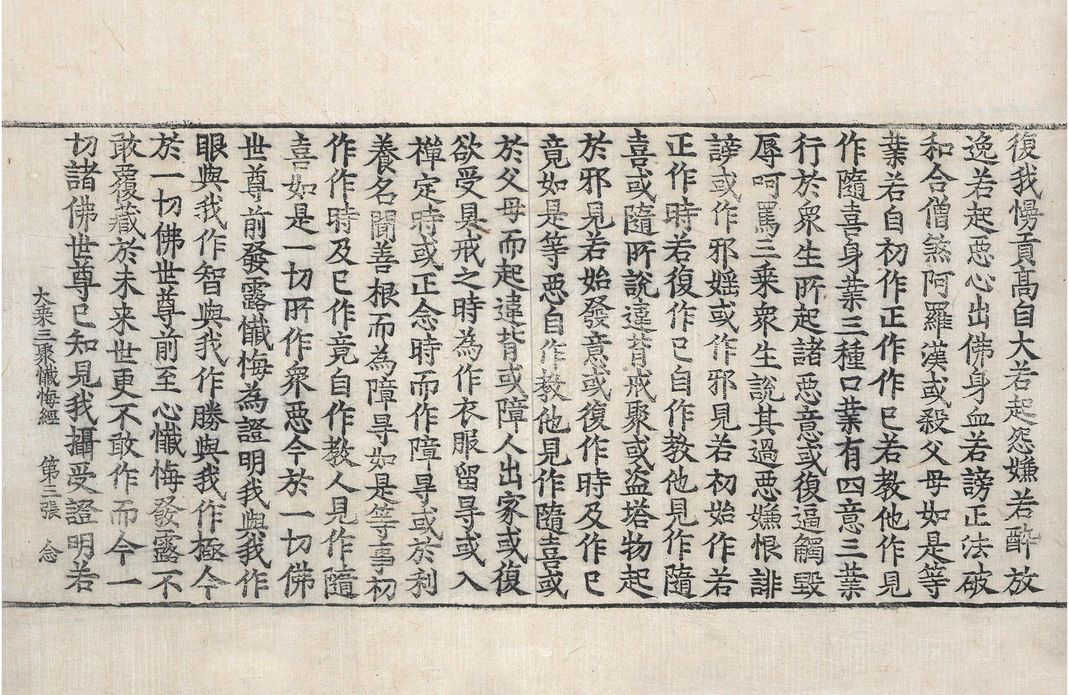 復我慢貢高自大若起怨嫌若酔放
逸若起惡心出佛身血若謗正法破
和合僧煞阿羅漢或殺父母如是等
業若自初作正作作已若教他作見
作隨喜身業三種口業有四意三業
行於衆生所起諸惡意或復逼觸毀
辱呵罵三乗衆生說其過惡嫌恨誹
謗或作邪婬或作邪見若初始作若
正作時若復作已自作教他見作隨
喜或隨所說違背戒聚或盗塔物起
於邪見若始發意或復作時及作已
竟如是等惡自作教他見作隨喜或
於父母而起違背或障人出家或復
欲受具戒之時為作衣服留㝵或入
禪定時或正念時而作障㝵或於利
養名聞善根而為障㝵如是等事初
作作時及已作竟自作教人見作隨
喜如是一切所作衆惡今於一切佛
世尊前發露懴悔為證明我與我作
眼與我作智與我作勝與我作極今
於一切佛世尊前至心懴悔發露不
敢覆藏於未来世更不敢作而今一
切諸佛世尊已知見我攝受證明若
大乗三聚懴悔經 第三張 念